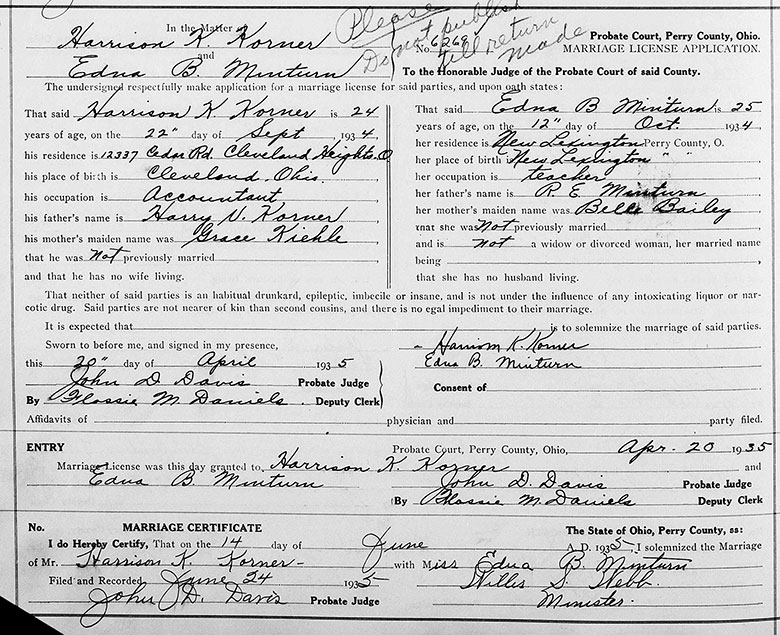 In the Matter of
Please
Do not publish
till return
made
Harrison K. Korner
and
Edna B. Minturn
No. 6269
Probate Court, Perry County, Ohio.
MARRIAGE LICENSE APPLICATION.
To the Honorable Judge of the Probate Court of said County.
The undersigned respectfully make application for a marriage license for said parties, and upon oath states:
That said Harrison K. Korner is 24
years of age, on the 22" day of Sept, 1934,
his residence is 12337 Cedar Rd. Cleveland Heights. O
his place of birth is Cleveland, Ohio.
his occupation is Accountant
his father's name is Harry V. Korner
his mother's maiden name was Grace Kiehle,
that he was Not previously married
and that he has no wife living.
That said Edna B Minturn is 25
years of age, on the 12" day of Oct. 1934
her residence is New Lexington Perry County, O.
her place of birth New Lexington " "
her occupation is teacher
her father's name is R. E. Minturn
her mother's maiden name was Belle Bailey
that she was Not previously married,
and is not a widow or divorced woman, her married name
being ,
that she has no husband living.
That neither of said parties is an habitual drunkard, epileptic, imbecile or insane, and is not under the influence of any intoxicating liquor or nar-
cotic drug. Said parties are not nearer of kin than second cousins, and there is no egal impediment to their marriage.
It is expected that is to solemnize the marriage of said parties.
Sworn to before me, and signed in my presence,
this 20" day of April 1935
John D. Davis Probate Judge
By Flossie M. Daniels. Deputy Clerk
Harrison K. Korner
Edna B. Minturn
Consent of
Affidavits of physician and party filed.
ENTRY
Probate Court, Perry County, Ohio, Apr. 20 1935
Marriage License was this day granted to Harrison K. Korner and
Edna B Minturn
John D. Davis Probate Judge
By Flossie M. Daniels Deputy Clerk
No. MARRIAGE CERTIFICATE The State of Ohio, Perry County, ss:
I do Hereby Certify, That on the 14 day of June A. D. 1935, I solemnized the Marriage
of Mr. Harrison K. Korner with Miss Edna B. Minturn
Filed and Recorded June 24 1935 Willis S. Webb.
John D. Davis Probate Judge Minister.